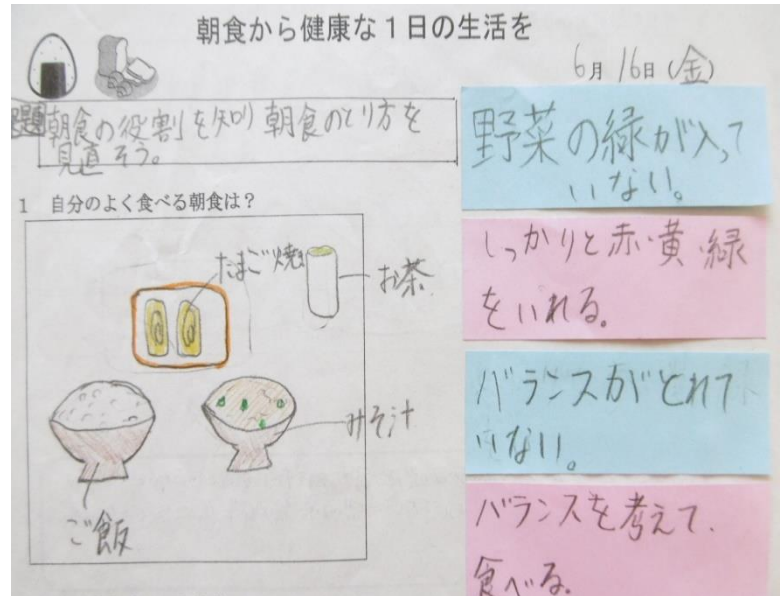 朝食から健康な1日の生活を
6月16日(金)
課題朝食の役割を知り朝食のとり方を
見直そう。
1 自分のよく食べる朝食は?
たまご焼き
お茶
みそ汁
ご飯
野菜の緑が入って
いない。
しっかりと赤・黄・緑
をいれる。
バランスがとれて
いない。
バランスを考えて、
食べる。